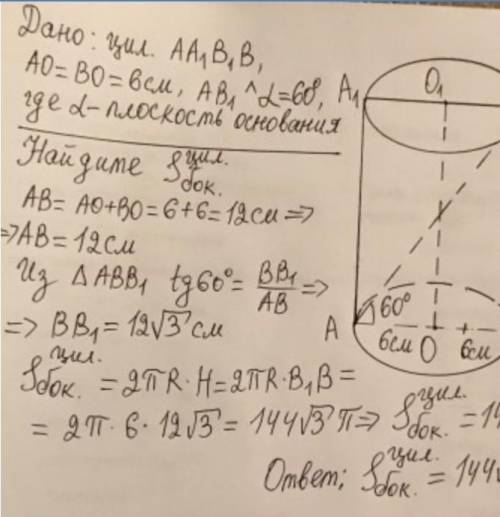 Дано: цил. AA₁B₁B,
AO=BO=6см, AB₁^α=60°,
где α-плоскость основания
Найдите Sбок.цил.
AB=AO+BO=6+6=12см=>
=>AB=12см
Из △ABB₁ tg60°=BB₁/AB=>
=> BB₁=12√3 см
Sбок.цил.=2πR·H=2πR·B₁B=
=2π·6·12√3=144√3 π=> Sбок.цил.=14
Ответ; Sбок.цил.=144
A₁ O₁
60°
A 6см O 6см